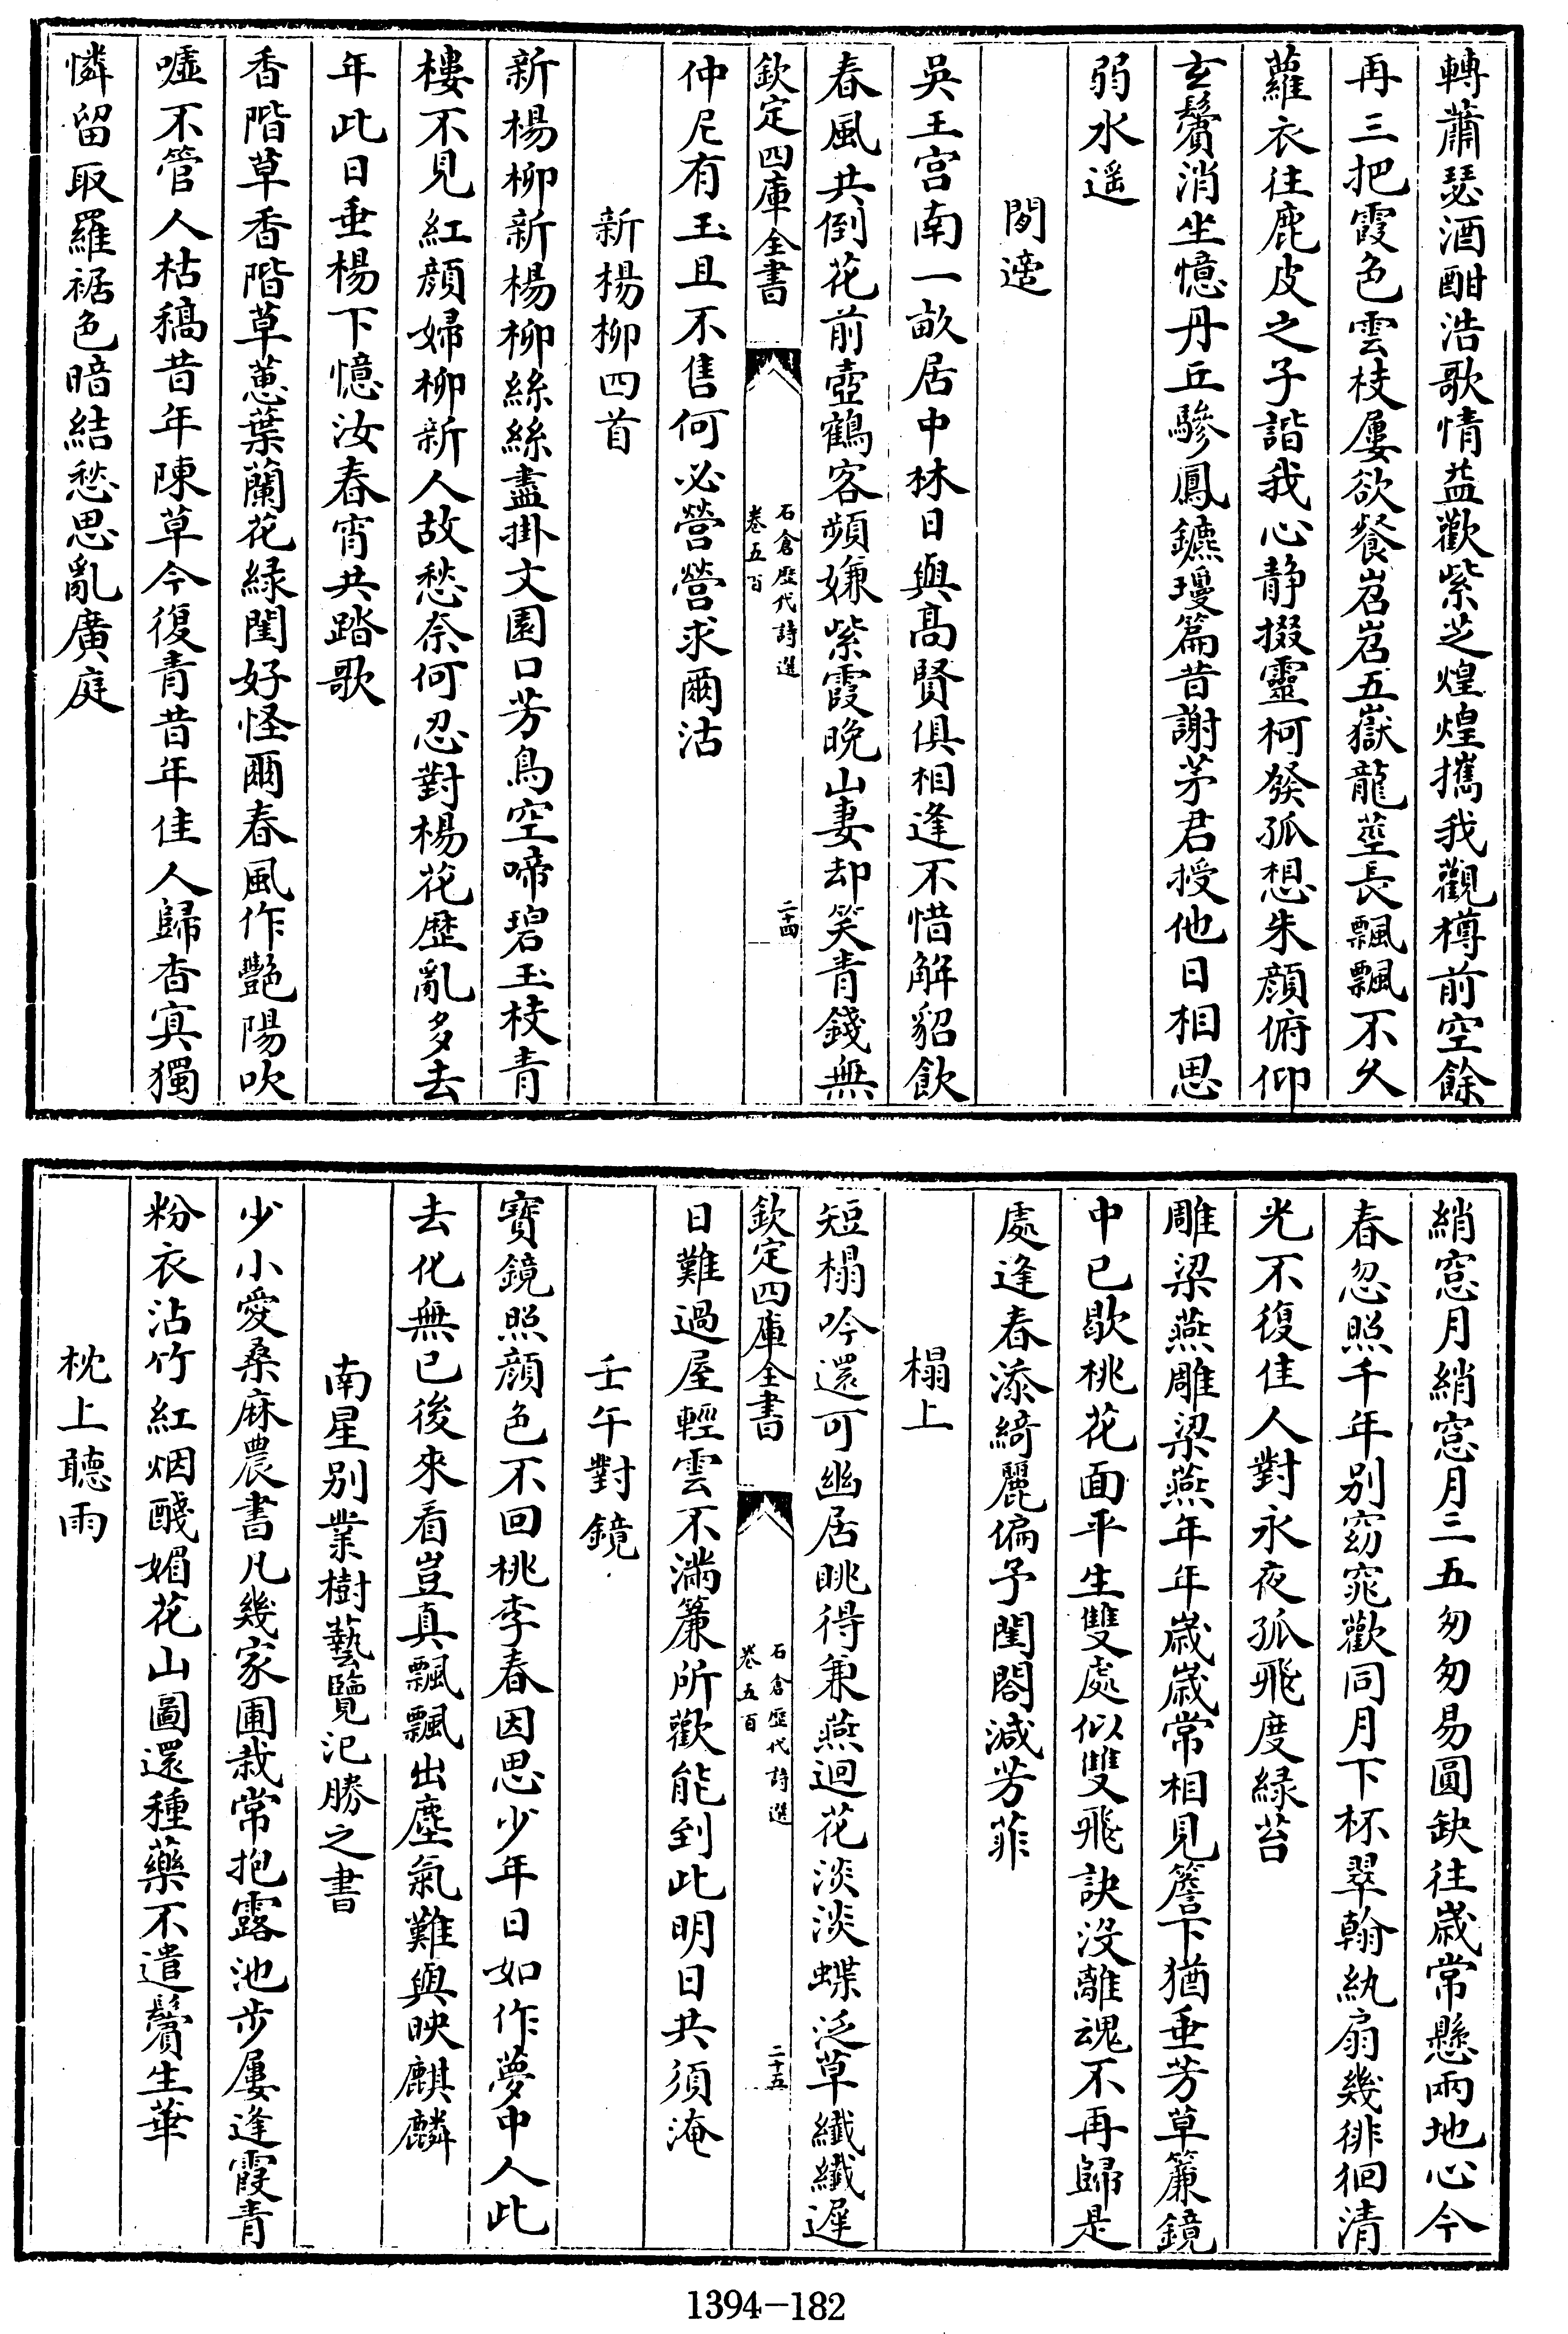 轉蕭瑟酒酣浩歌情益歡紫芝煌煌攜我觀樽前空餘
再三把霞色雲枝屢欲餐岧岧五嶽龍莖長飄飄不久
蘿衣往鹿皮之子諧我心静掇靈柯發孤想朱顔俯仰
玄鬢消坐憶丹丘驂鳳鑣瓊篇昔謝茅君授他日相思
弱水遥
閒適
吳王宫南一畝居中林日與髙賢俱相逢不惜解貂飲
春風共倒花前壺鶴客頻嫌紫霞晚山妻却笑青錢無
欽定四庫全書
石倉歴代詩選
卷五百
二十四
仲尼有玉且不售何必營營求爾沽
新楊柳四首
新楊柳新楊柳絲絲盡掛文園口芳鳥空啼碧玉枝青
樓不見紅顔婦柳新人故愁奈何忍對楊花歴亂多去
年此日垂楊下憶汝春宵共踏歌
香階草香階草蕙葉蘭花緑閨好怪爾春風作艷陽吹
噓不管人枯稿昔年陳草今復青昔年佳人歸杳寞獨
憐留取羅裾色暗結愁思亂廣庭
綃窓月綃窓月三五匆匆易圓缺往歳常懸兩地心今
春忽照千年别窈窕歡同月下杯翠翰紈扇幾徘徊清
光不復佳人對永夜孤飛度緑苔
雕梁燕雕梁燕年年歳歳常相見簷下猶垂芳草簾鏡
中已歇桃花面平生雙處似雙飛訣没離魂不再歸是
處逢春添綺麗偏予閨閤減芳菲
榻上
短榻吟還可幽居眺得兼燕迴花淡淡蝶泛草纖纖遲
欽定四庫全書
石倉歴代詩選
卷五百
二十五
日難過屋輕雲不滿簾所歡能到此明日共須淹
壬午對鏡
寳鏡照顔色不回桃李春因思少年日如作夢中人此
去化無已後來看豈真飄飄出塵氣難與映麒麟
南星别業樹藝覽氾勝之書
少小愛桑麻農書凡幾家圃栽常抱露池步屢逢霞青
粉衣沾竹紅烟醆媚花山圖還種藥不遣鬢生華
枕上聽雨
1394-182